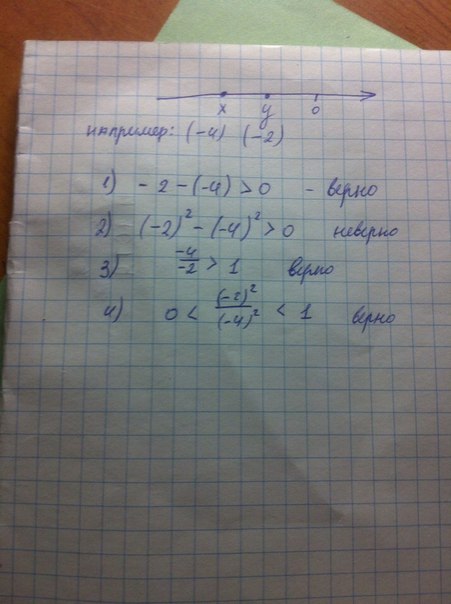 x y 0
например: (-4) (-2)
1) - 2 - (-4) > 0 - верно
2) (-2)² - (-4)² > 0 неверно
3) -4/-2 > 1 верно
4) 0 < (-2)²/(-4)² < 1 верно